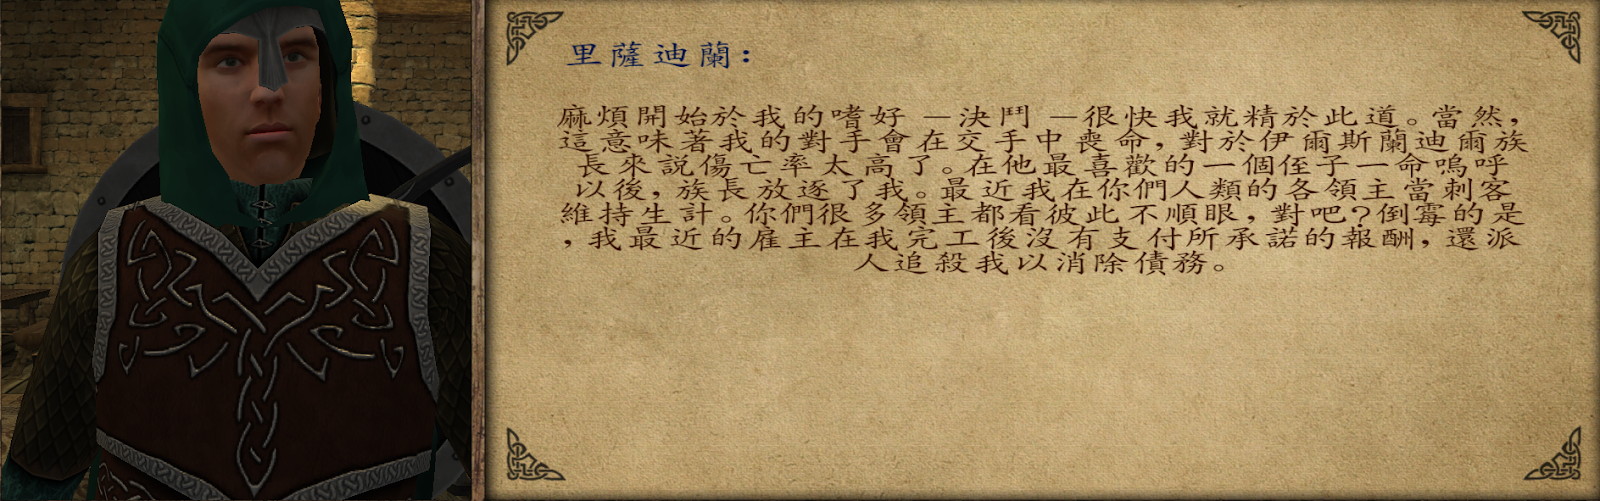 里薩迪蘭:
麻煩開始於我的嗜好 —決鬥 —很快我就精於此道。當然,
這意味著我的對手會在交手中喪命,對於伊爾斯蘭迪爾族
長來説傷亡率太高了。在他最喜歡的一個侄子一命嗚呼
以後,族長放逐了我。最近我在你們人類的各領主當刺客
維持生計。你們很多領主都看彼此不順眼,對吧?倒霉的是
,我最近的雇主在我完工後沒有支付所承諾的報酬,還派
人追殺我以消除債務。